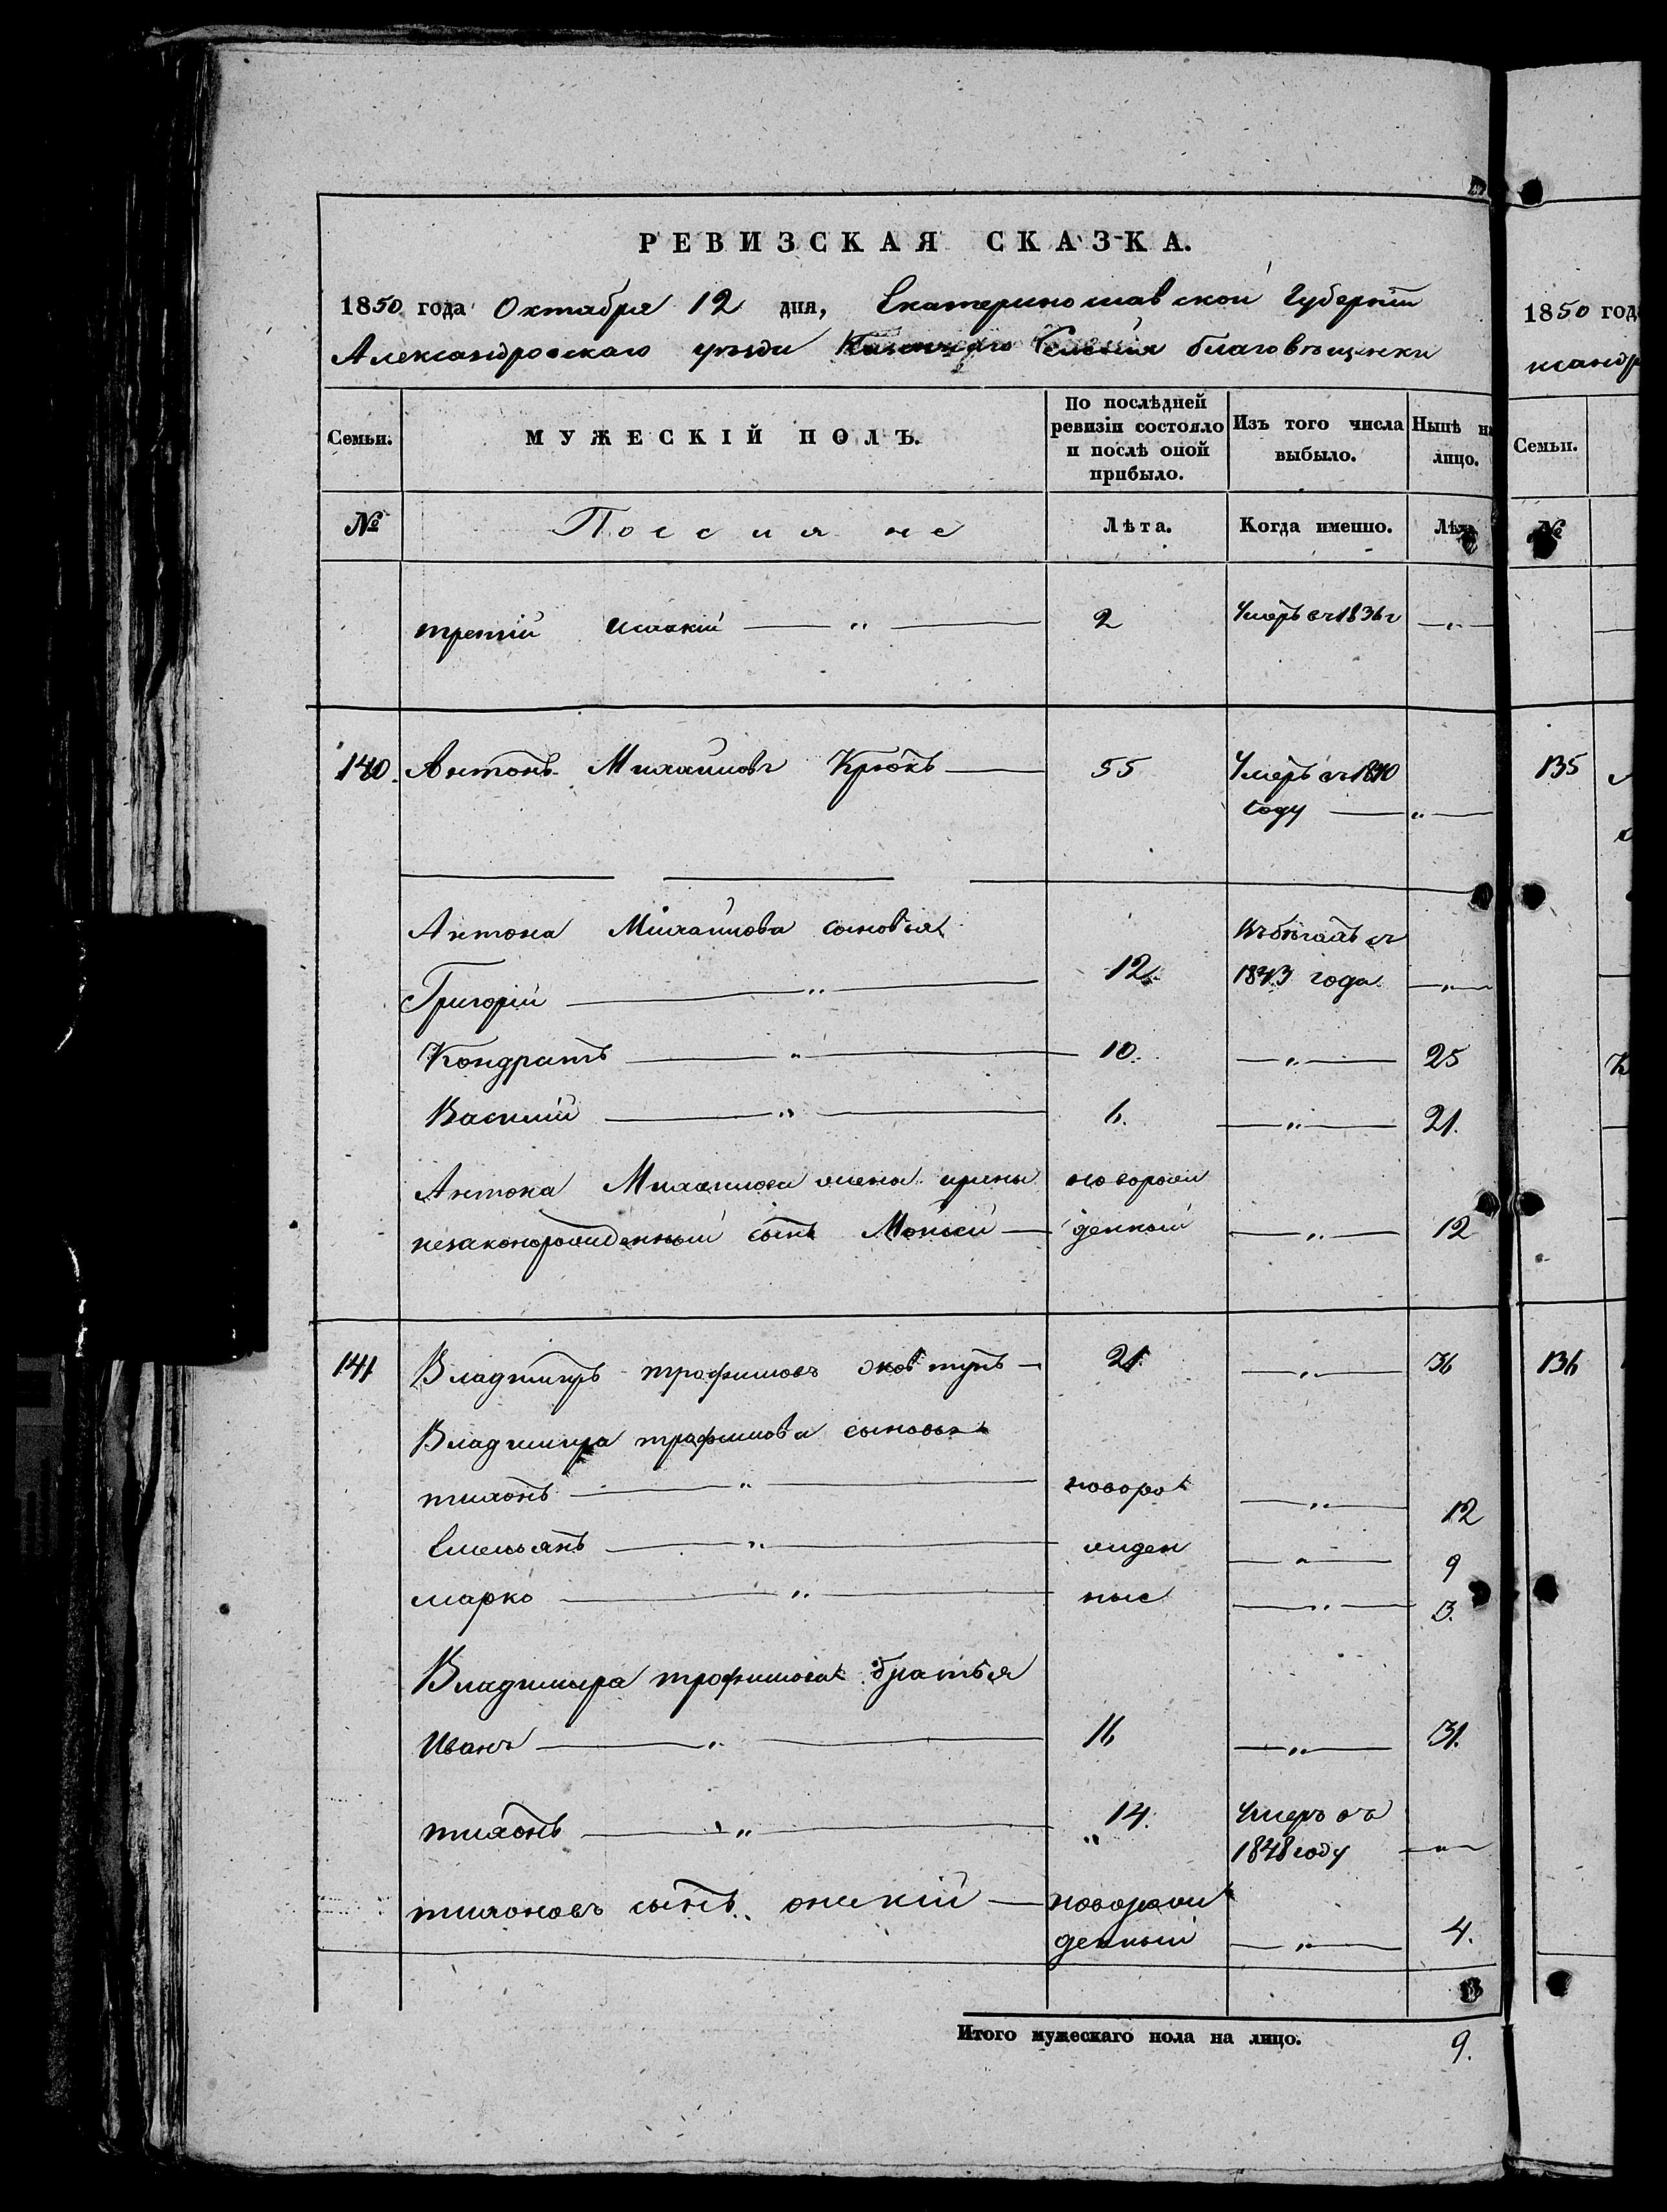 РЕВИЗСКАЯ СКАЗКА.
1850 года Октября 12 дня, Екатеринославской Губерніи
Александровскаго уѣзда Казеннаго Селенія благовѣщенки
Семьи. МУЖЕСКІЙ ПОЛЪ. По послѣдней ревизіи состояло и послѣ оной прибыло. Изъ того числа выбыло. Нынѣ на лицо.
№ Поселяне Лѣта. Когда именно. Лѣта
третій Исакій — " — 2 Умеръ въ 1836 г — " —
140. Антонъ Михаиловъ Крюкъ — 55 Умеръ въ 1840
году — " —
Антона Михаилова сыновья
Григорій — " — 12. Въ бѣгахъ съ 1843 года — " —
Кондратъ — " — 10. — " — 25
Василій — " — 6. — " — 21.
Антона Михаилова жены ирины новорож
незаконорожденный сынъ Моисей — денный — " — 12
141 Владимиръ трофимовъ Яковтунъ — 21 — " — 36
Владимира трофимова сыновья
тихонъ — " — новоро — " — 12
Емельянъ — " — жден — " — 9
марко — " — ные — " — 3.
Владимира трофимова братья
Иванъ — " — 16 — " — 31.
тихонъ — " — 14. Умеръ въ
" 1848 году — " —
тихоновъ сынъ оникій — новорож
денный — " — 4.
Итого мужескаго пола на лицо. 9.
1850 год
ксандр
Семьи.
№
135
136